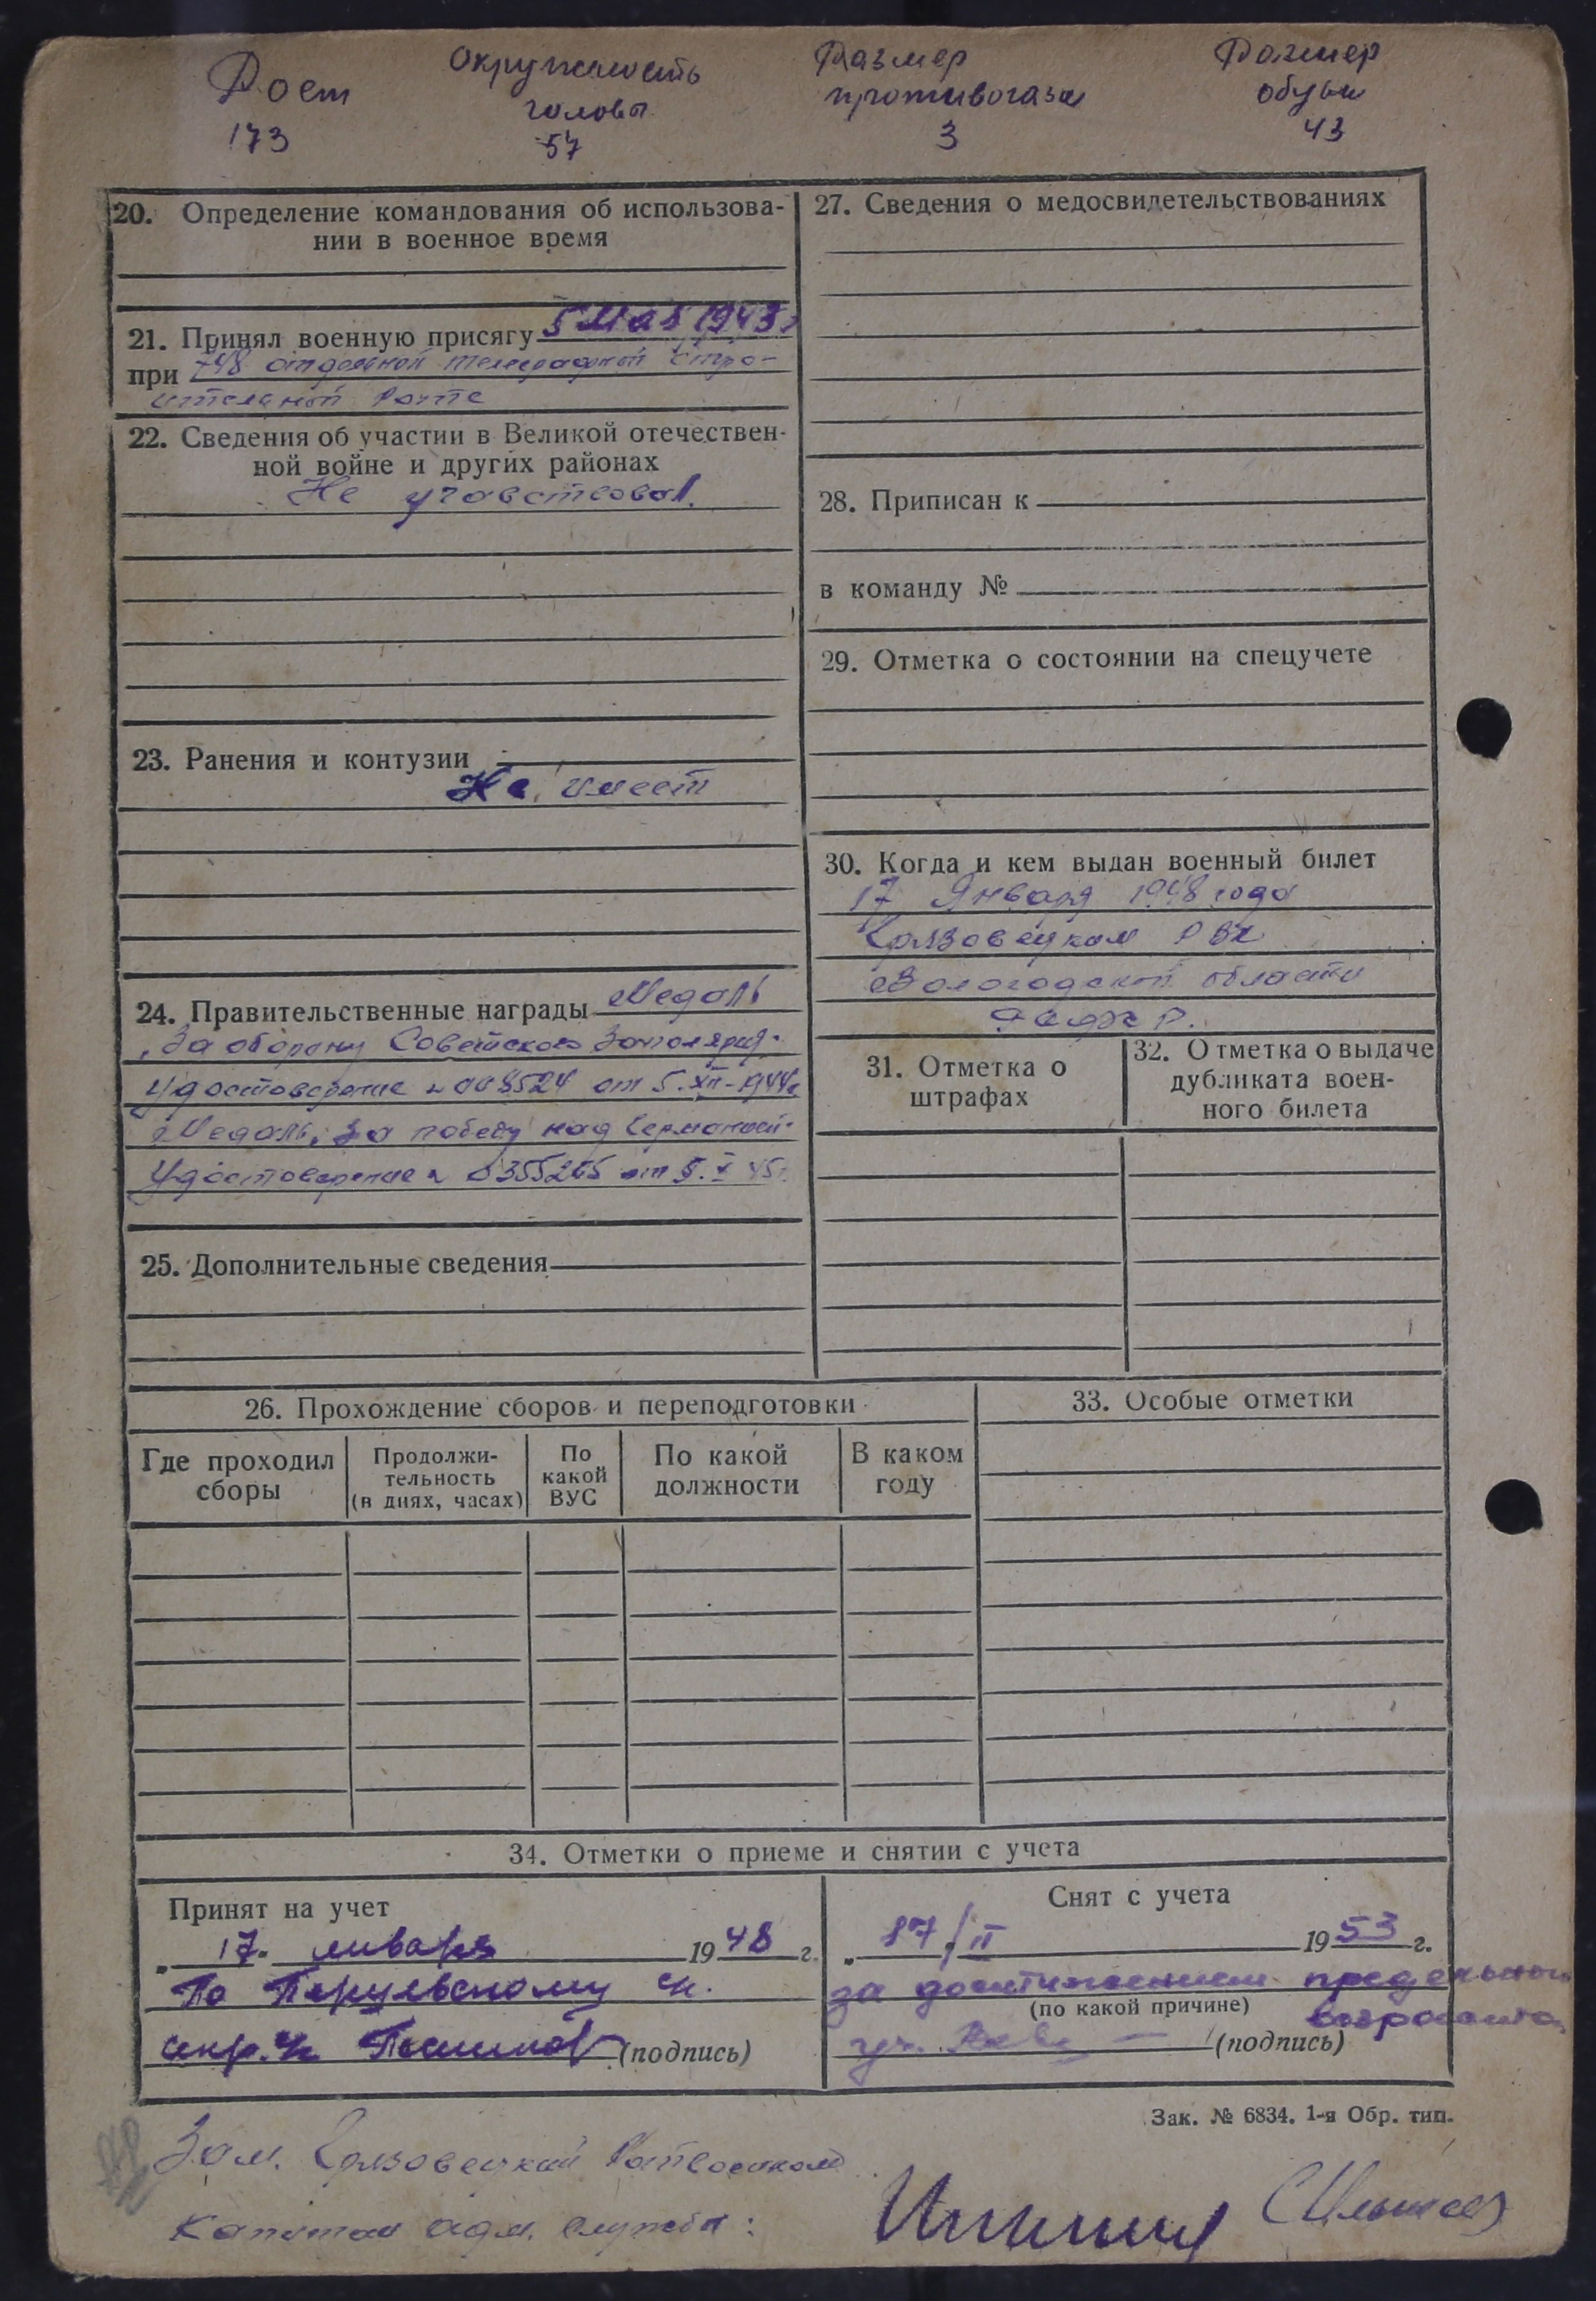 Рост
173
Окружность
головы
57
Размер
противогаза
3
Размер
обуви
43
20. Определение командования об использова-
нии в военное время
21. Принял военную присягу 5 Мая 1943г
при 748 отдельной телеграфной строи-
ительной Роте
22. Сведения об участии в Великой отечествен-
ной войне и других районах
Не участвовал.
23. Ранения и контузии
Не имеет
24. Правительственные награды Медаль
„За оборону Советского Заполярья"
Удостоверение № 008524 от 5.XII-1944г
Медаль „За победу над Германией"
Удостоверение № 0355265 от 5.X 45г.
25. Дополнительные сведения
26. Прохождение сборов и переподготовки
Где проходил
сборы
Продолжи-
тельность
(в днях, часах)
По
какой
ВУС
По какой
должности
В каком
году
27. Сведения о медосвидетельствованиях
28. Приписан к
в команду №
29. Отметка о состоянии на спецучете
30. Когда и кем выдан военный билет
17 Января 1948 года
Грязовецким РВК
Вологодской области
31. Отметка о
штрафах
32. Отметка о выдаче
дубликата воен-
ного билета
33. Особые отметки
34. Отметки о приеме и снятии с учета
Принят на учет
„ 17. января 1948 г.
По Перцевскому
(подпись)
Снят с учета
„ 17/II 1953 г.
за достижением предельного
(по какой причине) возраста
(подпись)
Зак. № 6834. 1-я Обр. тип.
Зам. Грязовецкий Райвоенком
Капитан адм. службы: